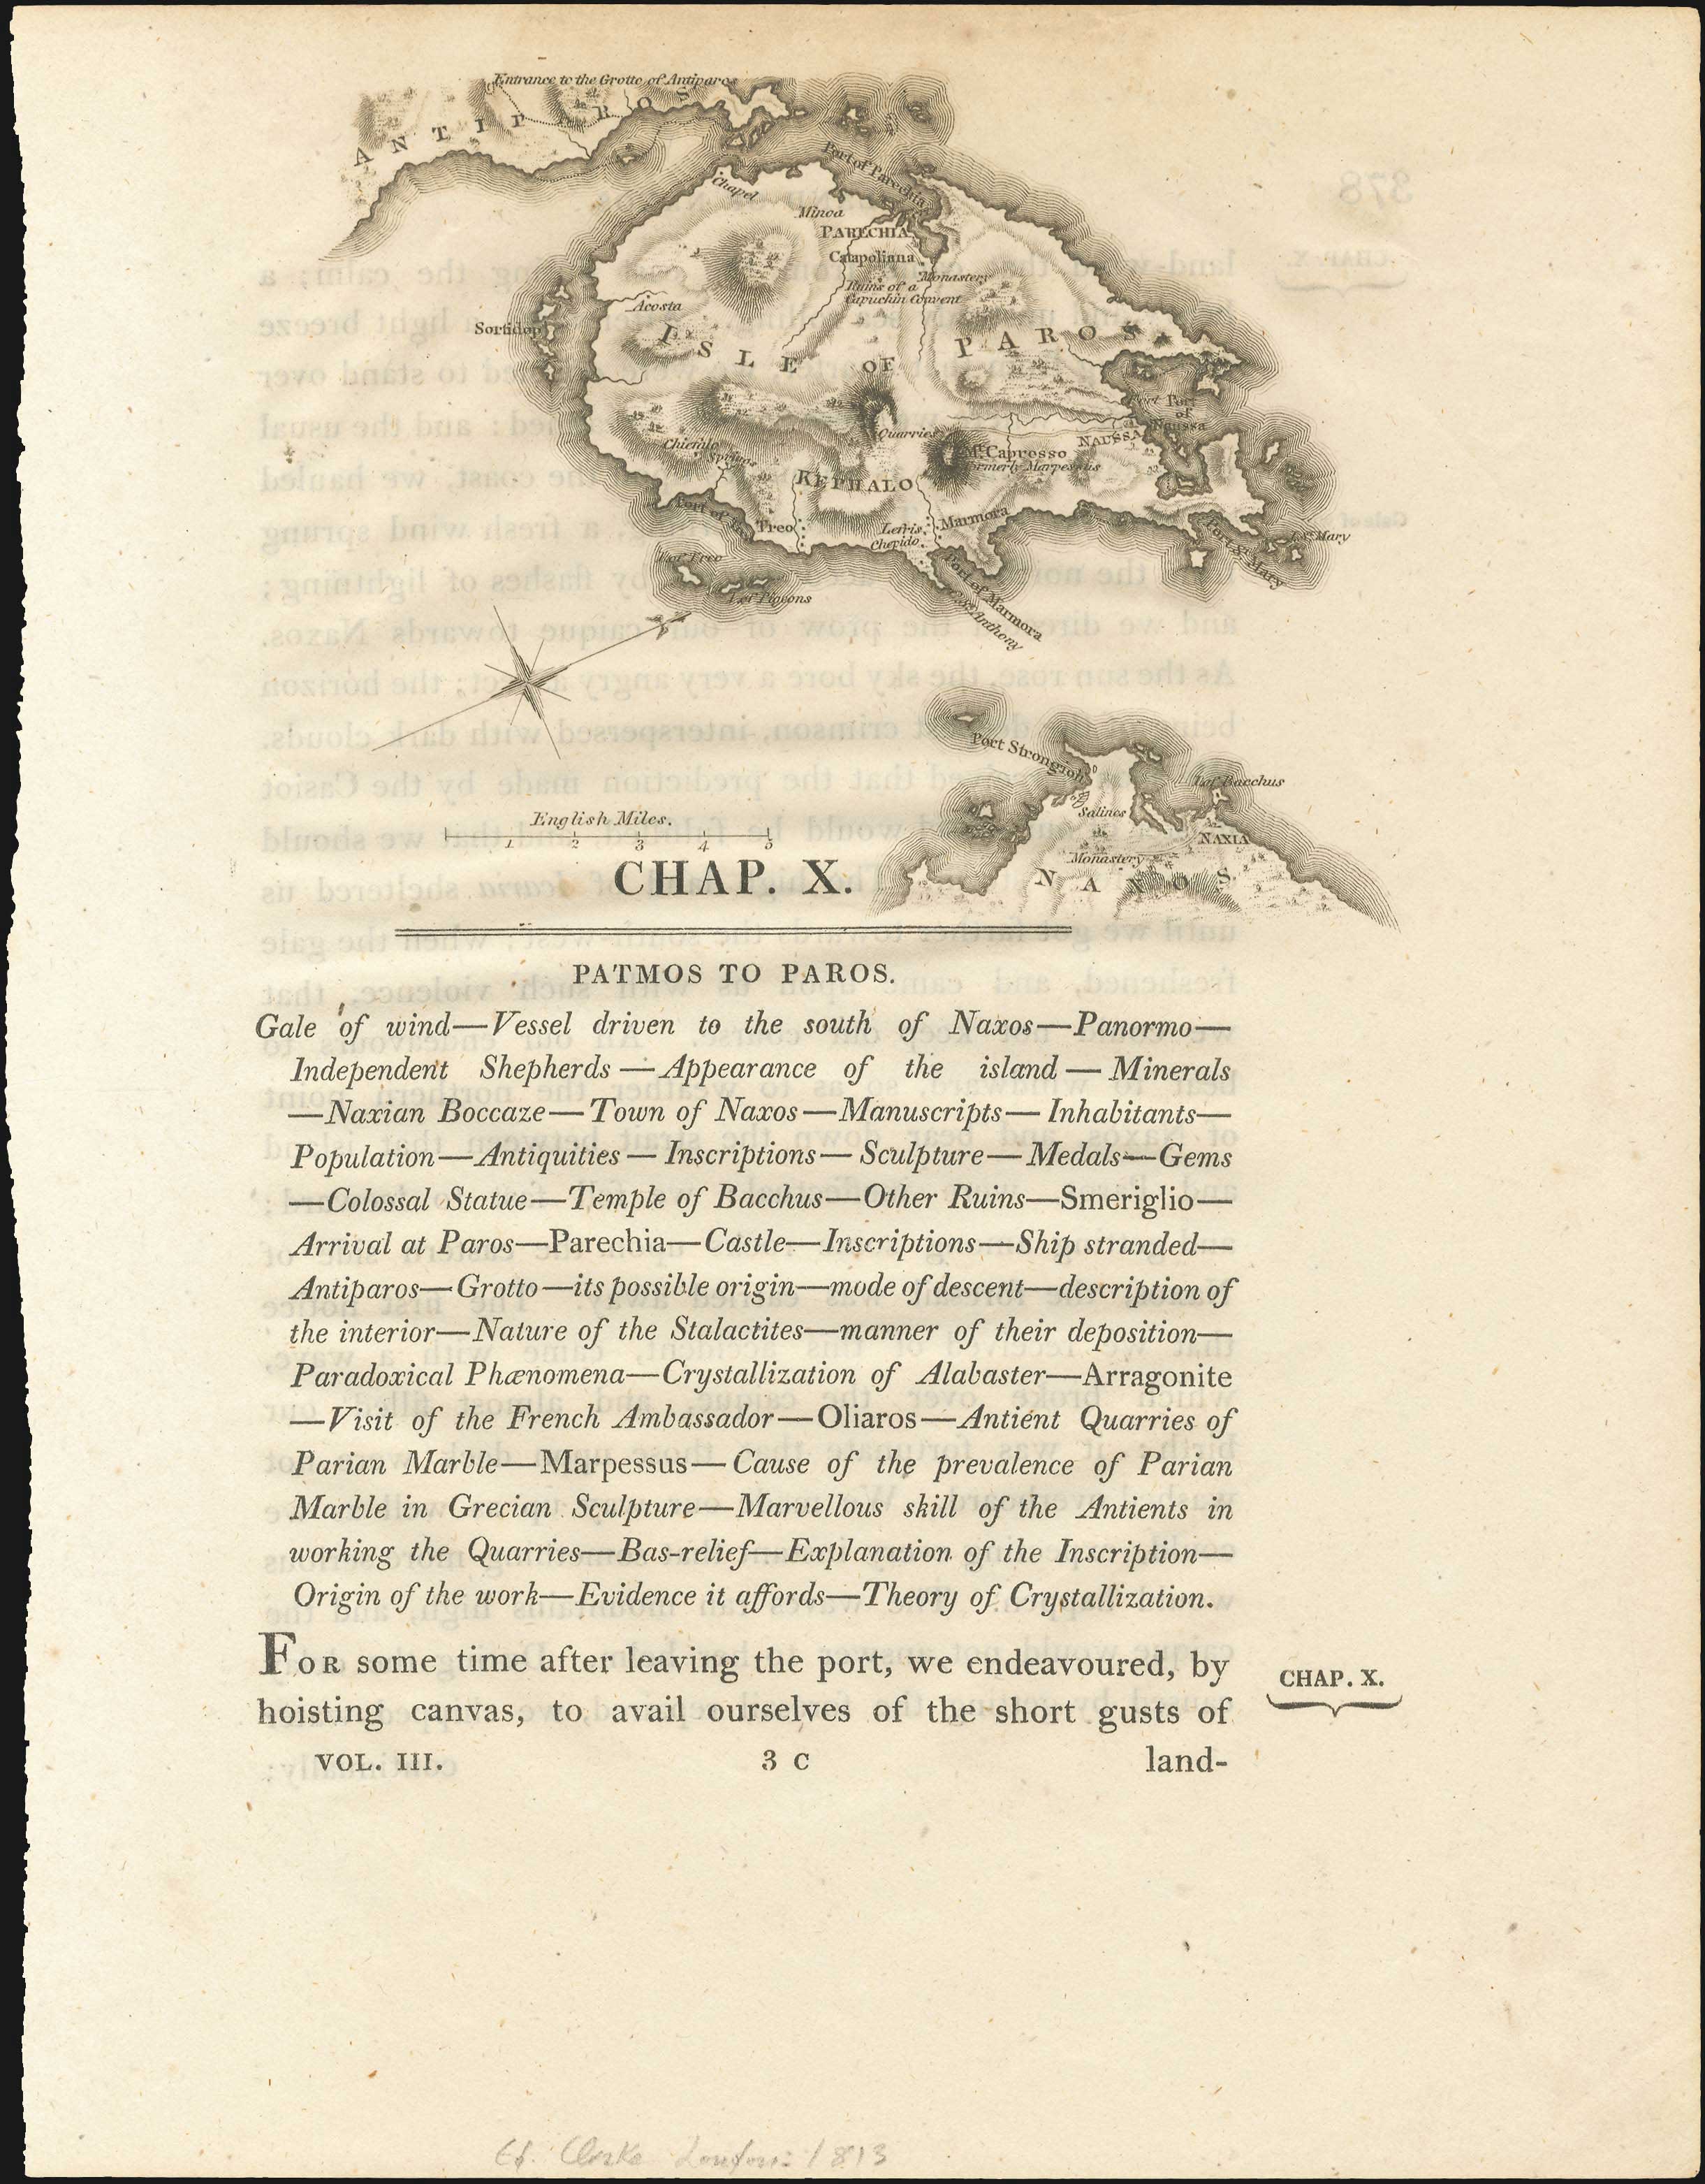 Entrance to the Grotto of Antiparos
ANTIPAROS
Port of Parechia
Chapel
Minoa
PARECHIA
Catapoliana
Monastery
Ruins of a
Capuchin Convent
Acosta
Sortidop
ISLE OF PAROS
Port
of
Naussa
Quarries
NAUSSA
Mt. Caprosso
formerly Marpessus
Springs
KEPHALO
Port of
Treo
Lefris
Marmora
Cherido
I. of Treo
I. of Pigeons
Port of Marmora
Anthony
Port St. Mary
I. St. Mary
Port Strongioli
I. of Bacchus
Salines
NAXIA
Monastery
NAXOS
English Miles.
1 2 3 4 5
CHAP. X.
PATMOS TO PAROS.
Gale of wind—Vessel driven to the south of Naxos—Panormo—
Independent Shepherds—Appearance of the island—Minerals
—Naxian Boccaze—Town of Naxos—Manuscripts—Inhabitants—
Population—Antiquities—Inscriptions—Sculpture—Medals—Gems
—Colossal Statue—Temple of Bacchus—Other Ruins—Smeriglio—
Arrival at Paros—Parechia—Castle—Inscriptions—Ship stranded—
Antiparos—Grotto—its possible origin—mode of descent—description of
the interior—Nature of the Stalactites—manner of their deposition—
Paradoxical Phænomena—Crystallization of Alabaster—Arragonite
—Visit of the French Ambassador—Oliaros—Antient Quarries of
Parian Marble—Marpessus—Cause of the prevalence of Parian
Marble in Grecian Sculpture—Marvellous skill of the Antients in
working the Quarries—Bas-relief—Explanation of the Inscription—
Origin of the work—Evidence it affords—Theory of Crystallization.
FOR some time after leaving the port, we endeavoured, by
hoisting canvas, to avail ourselves of the short gusts of
CHAP. X.
VOL. III. 3 C land-
Clarke London: 1813